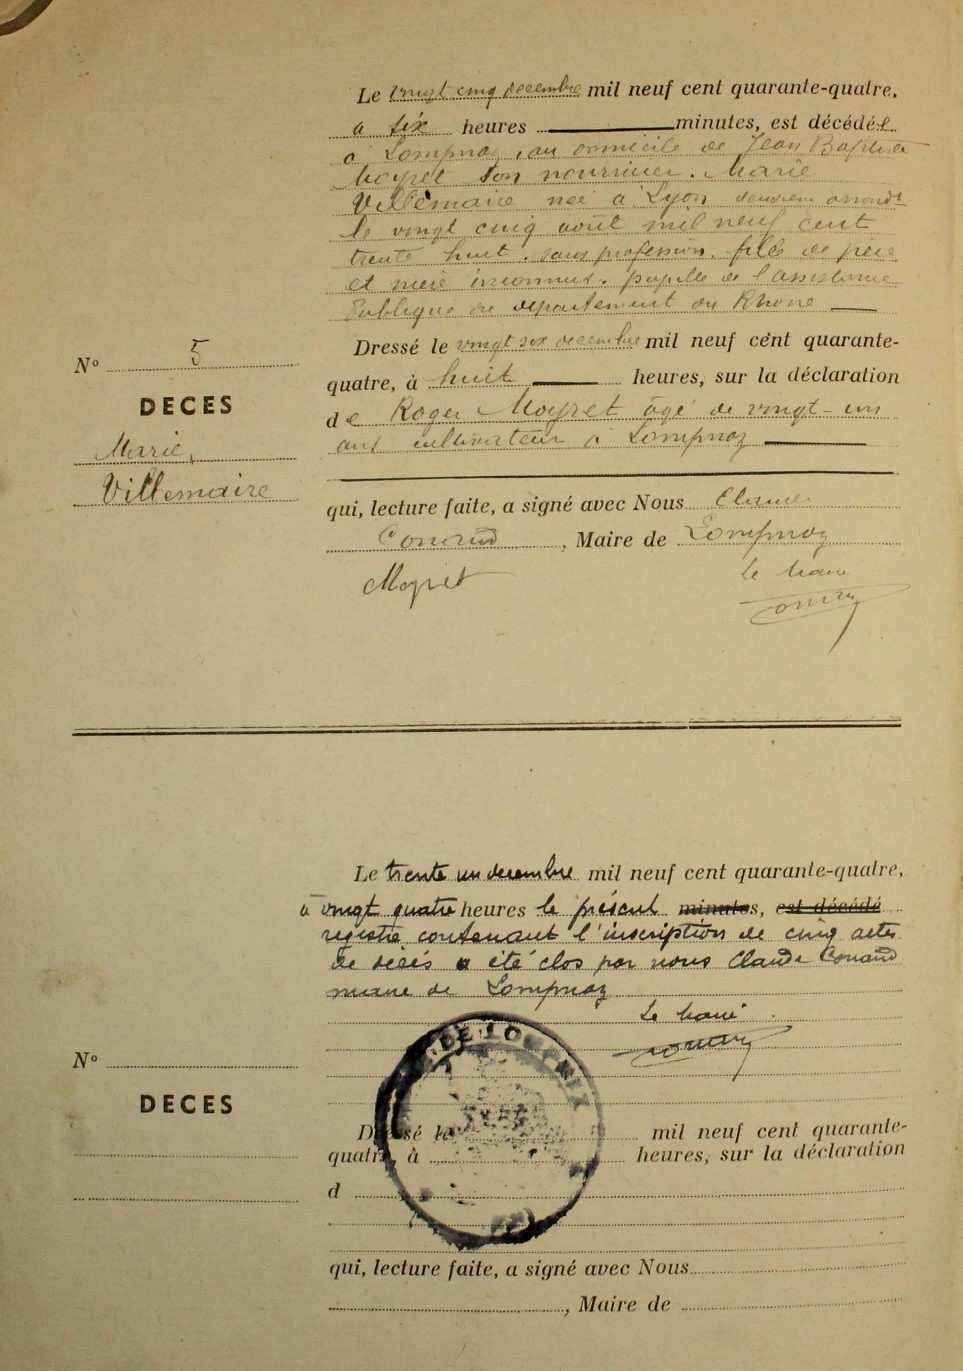 Le vingt cinq decembre mil neuf cent quarante-quatre,
a six heures minutes, est décédée
a Lompnaz, au domicile de Jean Baptiste
Moyret son nourricier. Marie
Villemaire née à Lyon deuxiem arrondt
le vingt cinq août mil neuf cent
trente huit. sans profession. fille de père
et mère inconnus. pupille de l'assistance
Publique du département du Rhone
N° 5
DECES
Marie,
Villemaire
Dressé le vingt six decembre mil neuf cent quarante-
quatre, à huit heures, sur la déclaration
de Roger Moyret âgé de vingt-un
ans cultivateur à Lompnaz
qui, lecture faite, a signé avec Nous Claude
Conand, Maire de Lompnaz
Moyret
Le Maire
Conand
Le trente un decembre mil neuf cent quarante-quatre,
à vingt quatre heures le présent minutes, est décédé
registre contenant l'inscription de cinq actes
de décès a été clos par nous Claude Conand
maire de Lompnaz
Le Maire
Conand
N°
DECES
Dressé le mil neuf cent quarante-
quatre, à heures, sur la déclaration
d
qui, lecture faite, a signé avec Nous
, Maire de